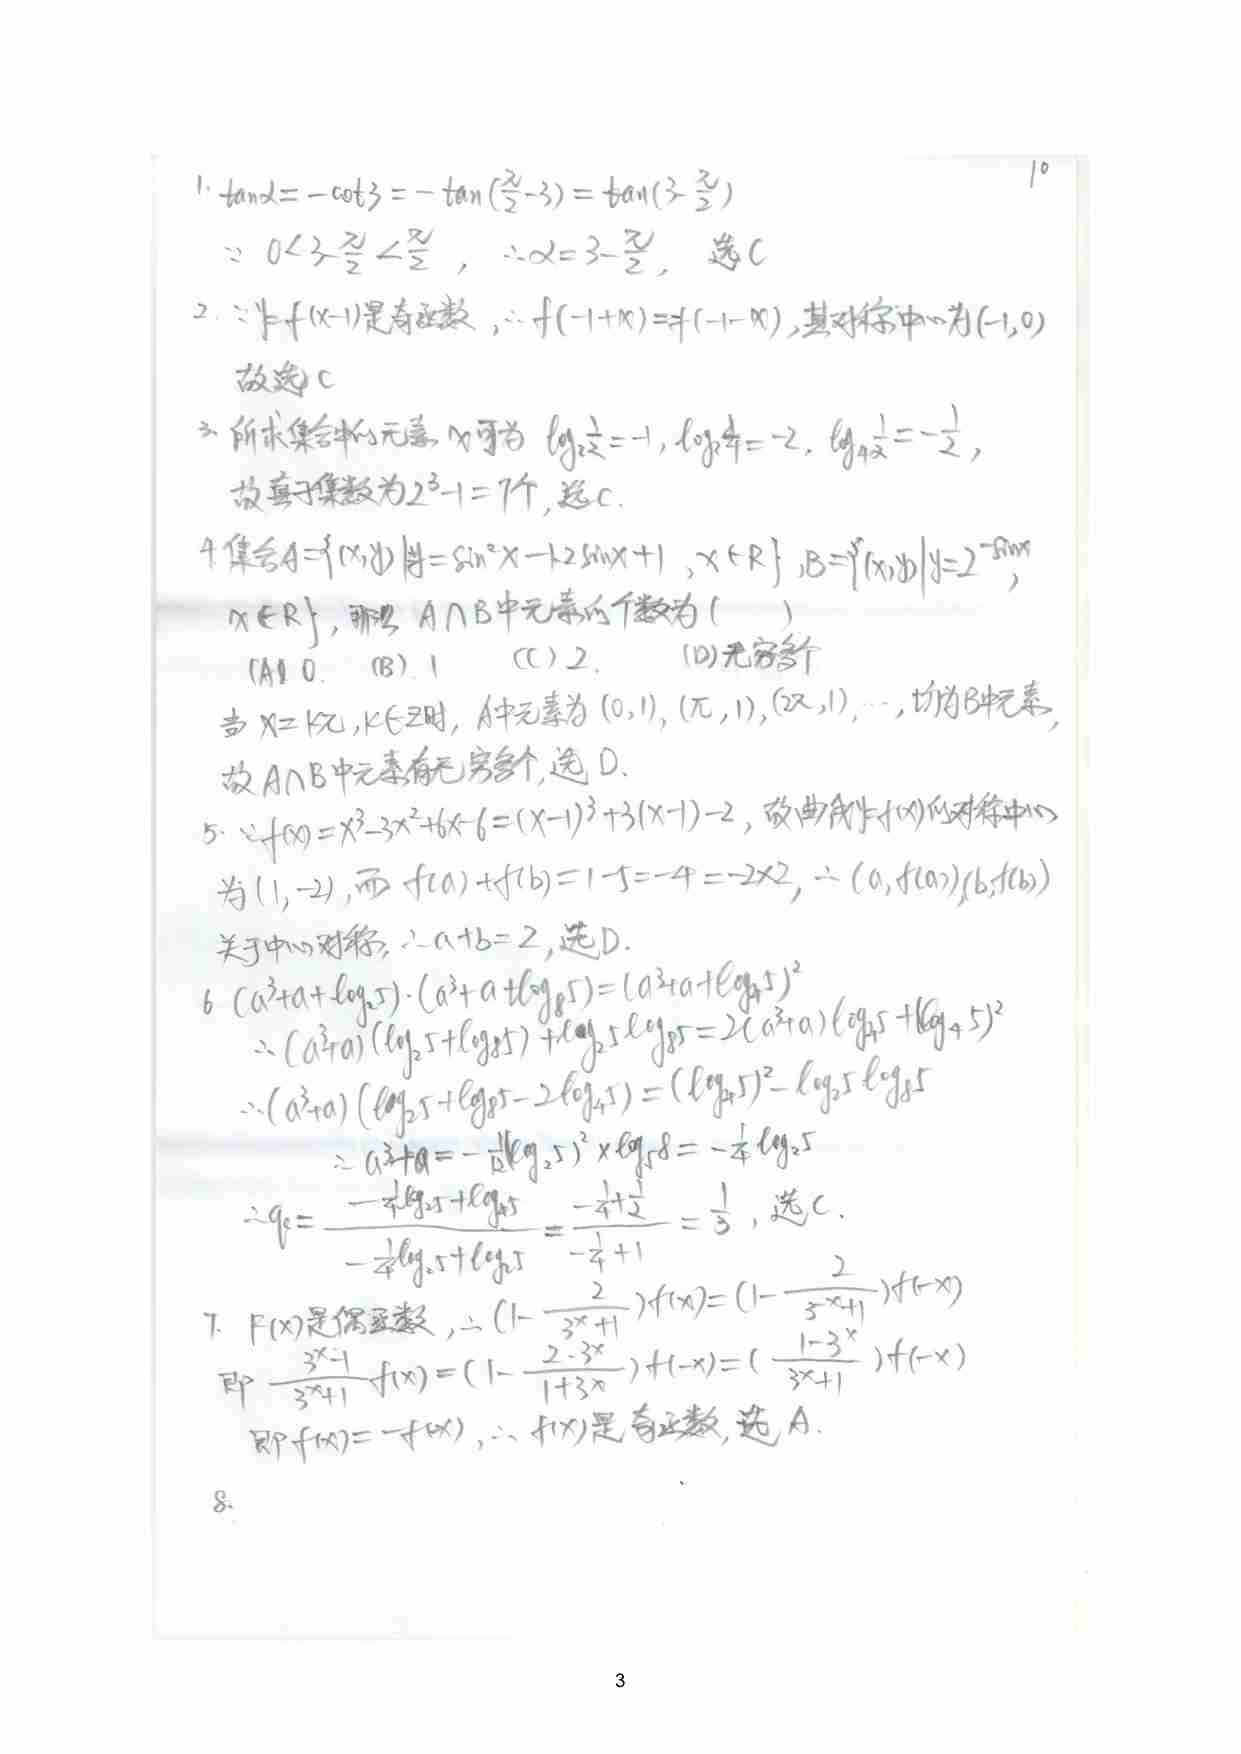 10
1. tanα=-cot3=-tan(π/2-3)=tan(3-π/2)
∵ 0<3-π/2<π/2, ∴α=3-π/2, 选C
2. ∵y=f(x-1)是奇函数,∴f(-1+x)=-f(-1-x),其对称中心为(-1,0)
故选C
3. 所求集合中的元素x可为 log₂1/2=-1, log₂1/4=-2, log₄1/2=-1/2,
故真子集数为2³-1=7个,选C.
4.集合A={(x,y)|y=sin²x-12sinx+1, x∈R},B={(x,y)|y=2^(-sinx),
x∈R},那么A∩B中元素的个数为( )
(A) 0. (B). 1 (C) 2. (D)无穷多个
当x=kπ,k∈Z时, A中元素为(0,1),(π,1),(2π,1),…,均为B中元素,
故A∩B中元素有无穷多个,选D.
5. ∵f(x)=x³-3x²+6x-6=(x-1)³+3(x-1)-2, 故曲线y=f(x)的对称中心
为(1,-2),而f(a)+f(b)=1-5=-4=-2×2, ∴(a,f(a)),(b,f(b))
关于中心对称,∴a+b=2,选D.
6 (a³+a+log₂5)·(a³+a+log₈5)=(a³+a+log₄5)²
∴(a³+a)(log₂5+log₈5)+log₂5log₈5=2(a³+a)log₄5+(log₄5)²
∴(a³+a)(log₂5+log₈5-2log₄5)=(log₄5)²-log₂5log₈5
∴a³+a=-1/12(log₂5)²×log₅8=-1/4log₂5
∴q=(-1/4log₂5+log₄5)/(-1/4log₂5+log₂5)=(-1/4+1/2)/(-1/4+1)=1/3, 选C.
7. F(x)是偶函数,∴(1-2/(3^x+1))f(x)=(1-2/(3^-x+1))f(-x)
即 (3^x-1)/(3^x+1)f(x)=(1-(2·3^x)/(1+3^x))f(-x)=((1-3^x)/(3^x+1))f(-x)
即f(x)=-f(-x),∴f(x)是奇函数,选A.
8.
3